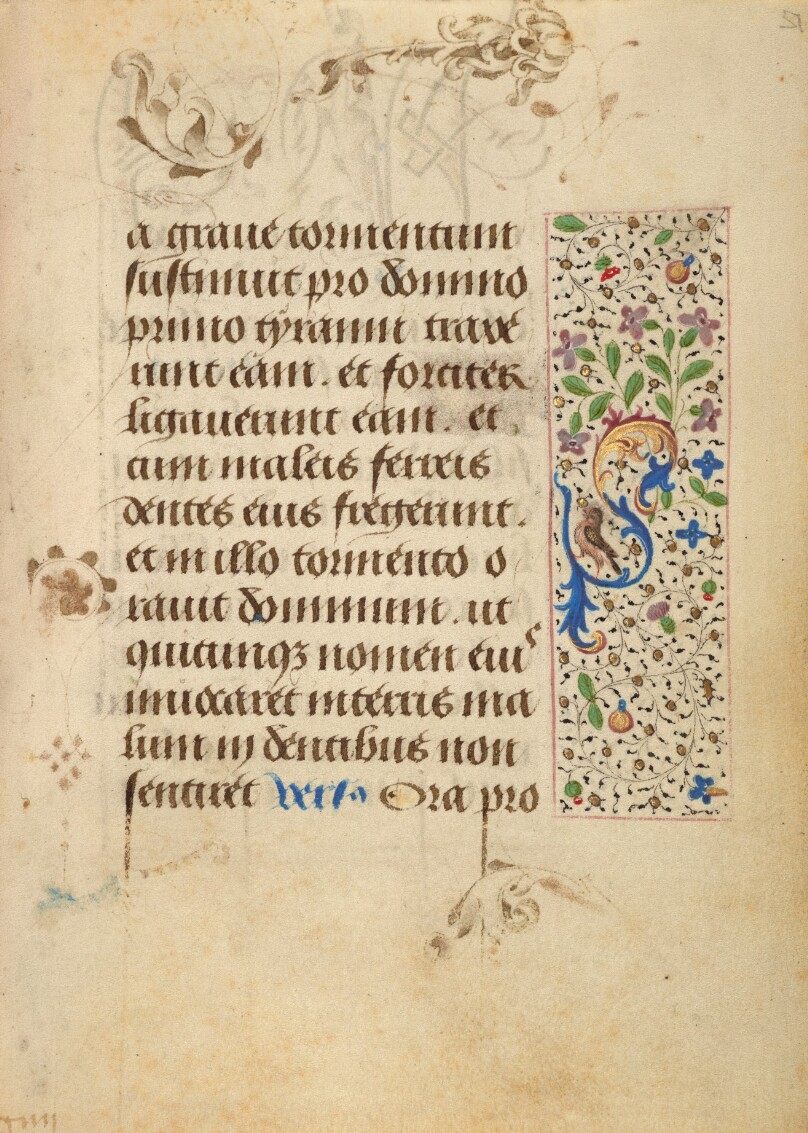 a graue tormentum
sustinuit pro domino
primo tyranni traxe
runt eam. et fortiter
ligauerunt eam. et
cum maleis ferreis
dentes eius fregerunt.
et in illo tormento o
rauit dominum. ut
quicunqꝫ nomen eius
inuocaret in terris ma
lum in dentibus non
sentiret verso Ora pro